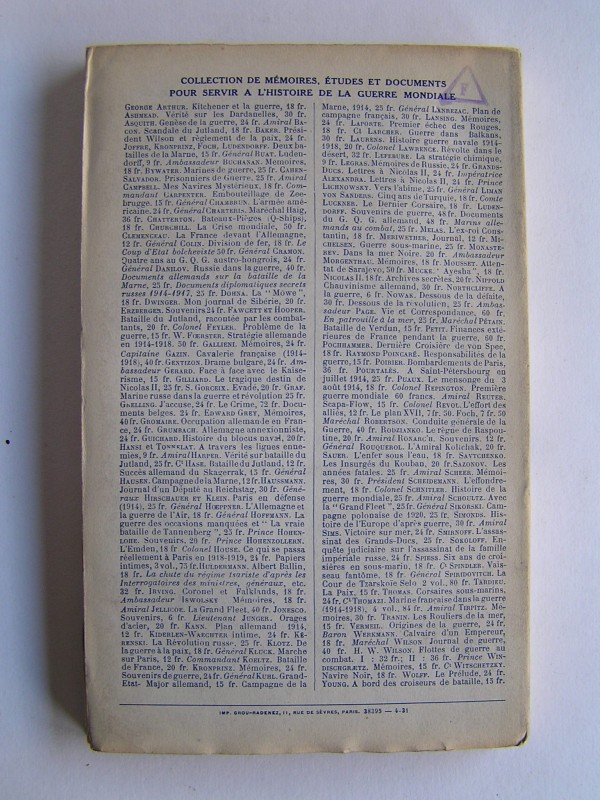 COLLECTION DE MÉMOIRES, ÉTUDES ET DOCUMENTS
POUR SERVIR A L'HISTOIRE DE LA GUERRE MONDIALE
F
GEORGE ARTHUR. Kitchener et la guerre, 48 fr.
ASHMEAD. Vérité sur les Dardanelles, 30 fr.
ASQUITH. Genèse de la guerre, 24 fr. Amiral BA-
CON. Scandale du Jutland, 18 fr. BAKER. Prési-
dent Wilson et règlement de la paix, 24 fr.
JOFFRE, KRONPRINZ, FOCH, LUDENDORFF. Deux ba-
tailles de la Marne, 15 fr. Général BUAT. Luden-
dorff, 9 fr. Ambassadeur BUCHANAN. Memoires,
18 fr. BYWATER. Marines de guerre, 25 fr. CAHEN-
SALVADOR. Prisonniers de Guerre, 25 fr. Amiral
CAMPBELL. Mes Navires Mystérieux, 18 fr. Com-
mandant CARPENTER. Embouteillage de Zee-
brugge. 15 fr. Général CHAMBRUN. L'armée amé-
ricaine. 24 fr. Général CHARTERIS. Maréchal Haig,
36 fr. CHATTERTON. Bateaux-Pièges (Q-Ships),
18 fr. CHURCHILL. La Crise mondiale, 50 fr.
CLEMENCEAU. La France devant l'Allemagne,
12 fr. Général COLIN. Division de fer, 18 fr. Le
Coup d'Etat bolcheviste 50 fr. Général CRAMON.
Quatre ans au G. Q. G. austro-hongrois, 24 fr.
Général DANILOV. Russie dans la guerre, 40 fr.
Documents allemands sur la bataille de la
Marne, 25 fr. Documents diplomatiques secrets
russes 1914-1917, 25 fr. DOHNA. La "Möwe",
18 fr. DWINGER. Mon journal de Sibérie, 20 fr.
ERZBERGER. Souvenirs 24 fr. FAWCETT et HOOPER.
Bataille du Jutland, racontée par les combat-
tants, 20 fr. Colonel FEYLER. Problème de la
guerre, 15 fr. W. FOERSTER. Stratégie allemande
en 1914-1918. 50 fr. GALLIENI. Mémoires, 24 fr.
Capitaine GAZIN. Cavalerie française (1914-
1918), 40 fr. GENTIZON. Drame bulgare, 24 fr. Am-
bassadeur GERARD. Face à face avec le Kaise-
risme, 15 fr. GILLIARD. Le tragique destin de
Nicolas II, 25 fr. S. GORCHIX. Evadé, 20 fr. GRAF.
Marine russe dans la guerre et révolution 25 fr.
GRELLING. J'accuse, 24 fr. Le Crime, 72 fr. Docu-
ments belges. 24 fr. EDWARD GREY. Mémoires,
40 fr. GROMAIRE. Occupation allemande en Fran-
ce, 24 fr. GRUMBACH. Allemagne annexionniste,
24 fr. GUICHARD. Histoire du blocus naval, 20 fr.
HANSI et TONNELAT. A travers les lignes enne-
mies, 9 fr. Amiral HARPER. Vérité sur bataille du
Jutland, 25 fr. Ct HASE. Bataille du Jutland, 12 fr.
Succès allemand du Skagerrak, 15 fr. Général
HAUSEN. Campagne de la Marne, 12 fr. HAUSSMANN.
Journal d'un Député au Reichstag, 30 fr. Géné-
raux HIRSCHAUER et KLEIN. Paris en défense
(1914), 25 fr. Général HŒPPNER. L'Allemagne et
la guerre de l'Air, 18 fr. Général HOFFMANN. La
guerre des occasions manquées et "La vraie
bataille de Tannenberg", 25 fr. Prince HOHEN-
LOHE. Souvenirs, 20 fr. Prince HOHENZOLLERN.
L'Emden, 18 fr. Colonel HOUSE. Ce qui se passa
réellement à Paris en 1918-1919, 24 fr. Papiers
intimes, 3 vol., 75 fr. HULDERMANN. Albert Ballin,
18 fr. La chute du régime tsariste d'après les
Interrogatoires des ministres, généraux, etc.
32 fr. IRVING. Coronel et Falklands, 18 fr.
Ambassadeur ISWOLSKY Mémoires, 18 fr.
Amiral JELLICOE. La Grand Fleet, 40 fr. JONESCO.
Souvenirs, 6 fr. Lieutenant JUNGER. Orages
d'acier, 20 fr. KANN. Plan allemand 1914,
12 fr. KIDERLEN-WAECHTER intime, 24 fr. KÉ-
RENSKI. La Révolution russe, 25 fr. KLOTZ. De
la guerre à la paix, 18 fr. Général KLUCK. Marche
sur Paris, 12 fr. Commandant KOELTZ. Bataille
de France, 20 fr. KRONPRINZ. Mémoires, 24 fr.
Souvenirs de guerre, 24 fr. Général KUHL. Grand-
Etat- Major allemand, 15 fr. Campagne de la
Marne, 1914, 25 fr. Général LANREZAC. Plan de
campagne français, 30 fr. LANSING. Mémoires,
24 fr. LAPORTE. Premier échec des Rouges,
18 fr. Ct LARCHER. Guerre dans Balkans,
30 fr. LAURENS. Histoire guerre navale 1914-
1918, 20 fr. Colonel LAWRENCE. Révolte dans le
désert, 32 fr. LEFEBURE. La stratégie chimique,
9 fr. LEGRAS. Mémoires de Russie, 24 fr. GRANDS-
DUCS. Lettres à Nicolas II, 24 fr. Impératrice
ALEXANDRA. Lettres à Nicolas II, 24 fr. Prince
LICHNOWSKY. Vers l'abîme, 25 fr. Général LIMAN
VON SANDERS. Cinq ans de Turquie, 18 fr. Comte
LUCKNER. Le Dernier Corsaire, 18 fr. LUDEN-
DORFF. Souvenirs de guerre, 48 fr. Documents
du G. Q. G. allemand, 48 fr. Marne alle-
mands au combat, 25 fr. MELAS. L'ex-roi Cons-
tantin, 18 fr. MERIWETHER. Journal, 12 fr. MI-
CHELSEN. Guerre sous-marine, 25 fr. MONASTE-
REV. Dans la mer Noire. 20 fr. Ambassadeur
MORGENTHAU. Mémoires, 18 fr. MOUSSET. Atten-
tat de Sarajevo, 50 fr. MUCKE. "Ayesha", 18 fr.
NICOLAS II. 18 fr. Archives secrètes, 20 fr. NIPPOLD
Chauvinisme allemand, 30 fr. NORTHCLIFFE. A
la guerre, 6 fr. NOWAK. Dessous de la défaite,
30 fr. Dessous de la révolution, 25 fr. Ambas-
sadeur PAGE. Vie et Correspondance, 60 fr.
En patrouille à la mer, 25 fr. Maréchal PÉTAIN.
Bataille de Verdun, 15 fr. PETIT. Finances exté-
rieures de France pendant la guerre, 60 fr.
POCHHAMMER. Dernière Croisière de von Spee,
18 fr. RAYMOND POINCARÉ. Responsabilités de la
guerre, 15 fr. POIRIER. Bombardements de Paris,
36 fr. POURTALÈS. A Saint-Pétersbourg en
juillet 1914, 25 fr. PUAUX. Le mensonge du 3
août 1914, 18 fr. Colonel REPINGTON. Première
guerre mondiale 60 francs. Amiral REUTER.
Scapa-Flow, 15 fr. Colonel REVOL. L'effort des
alliés, 12 fr. Le plan XVII, 7 fr. 50. Foch, 7 fr. 50
Maréchal ROBERTSON. Conduite générale de la
Guerre, 40 fr. RODZIANKO. Le règne de Raspou-
tine, 20 fr. Amiral RONARC'H. Souvenirs. 12 fr.
Général ROUQUEROL. L'Amiral Kolichak, 20 fr.
SAUER. L'enfer sous l'eau, 18 fr. SAVTCHENKO.
Les Insurgés du Kouban, 20 fr. SAZONOV. Les
années fatales. 25 fr. Amiral SCHEER. Mémoi-
res, 30 fr. Président SCHEIDEMANN. L'effondre-
ment, 18 fr. Colonel SCHNITLER. Histoire de la
guerre mondiale, 25 fr. Amiral SCHOULTZ. Avec
la "Grand Fleet", 25 fr. Général SIKORSKI. Cam-
pagne polonaise de 1920, 25 fr. SIMONDS. His-
toire de l'Europe d'après guerre, 30 fr. Amiral
SIMS. Victoire sur mer, 24 fr. SMIRNOFF. L'assas-
sinat des Grands-Ducs, 25 fr. SOKOLOFF. En-
quête judiciaire sur l'assassinat de la famille
impériale russe, 24 fr. SPIESS. Six ans de croi-
sières en sous-marin. 18 fr. Ct SPINDLER. Vais-
seau fantôme, 18 fr. Général SPIRIDOVITCH. La
Cour de Tzarskoïe Selo. 2 vol. 80 fr. TARDIEU.
La Paix, 15 fr. THOMAS. Corsaires sous-marins,
24 fr. Ct THOMAZI. Marine française dans la guerre
(1914-1918), 4 vol., 84 fr. Amiral TIRPITZ. Mé-
moires, 30 fr. TRANIN. Les Rouliers de la mer,
15 fr. VERMEIL. Origines de la guerre, 24 fr.
Baron WERKMANN. Calvaire d'un Empereur,
18 fr. Maréchal WILSON Journal de guerre,
40 fr. H. W. WILSON. Flottes de guerre au
combat, I : 32 fr.; II : 36 fr. Prince WIN-
DISCHGRÆTZ. Mémoires, 15 fr. Ct WITSCHETZKY.
Navire Noir, 18 fr. WOLFF. Le Prélude, 24 fr.
YOUNG. A bord des croiseurs de bataille, 15 fr.
IMP. CROU-RADENEZ, 11, RUE DE SÈVRES, PARIS. 38295 — 4-31